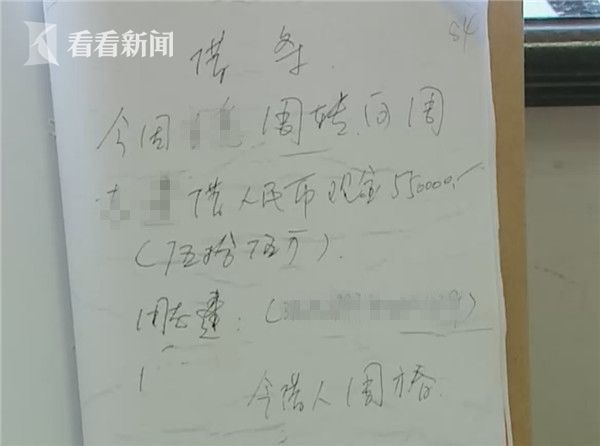 看看新闻
84
借条
今因 周转,向周
借人民币现金550000,-
(伍拾伍万).
周志 :(
今借人周